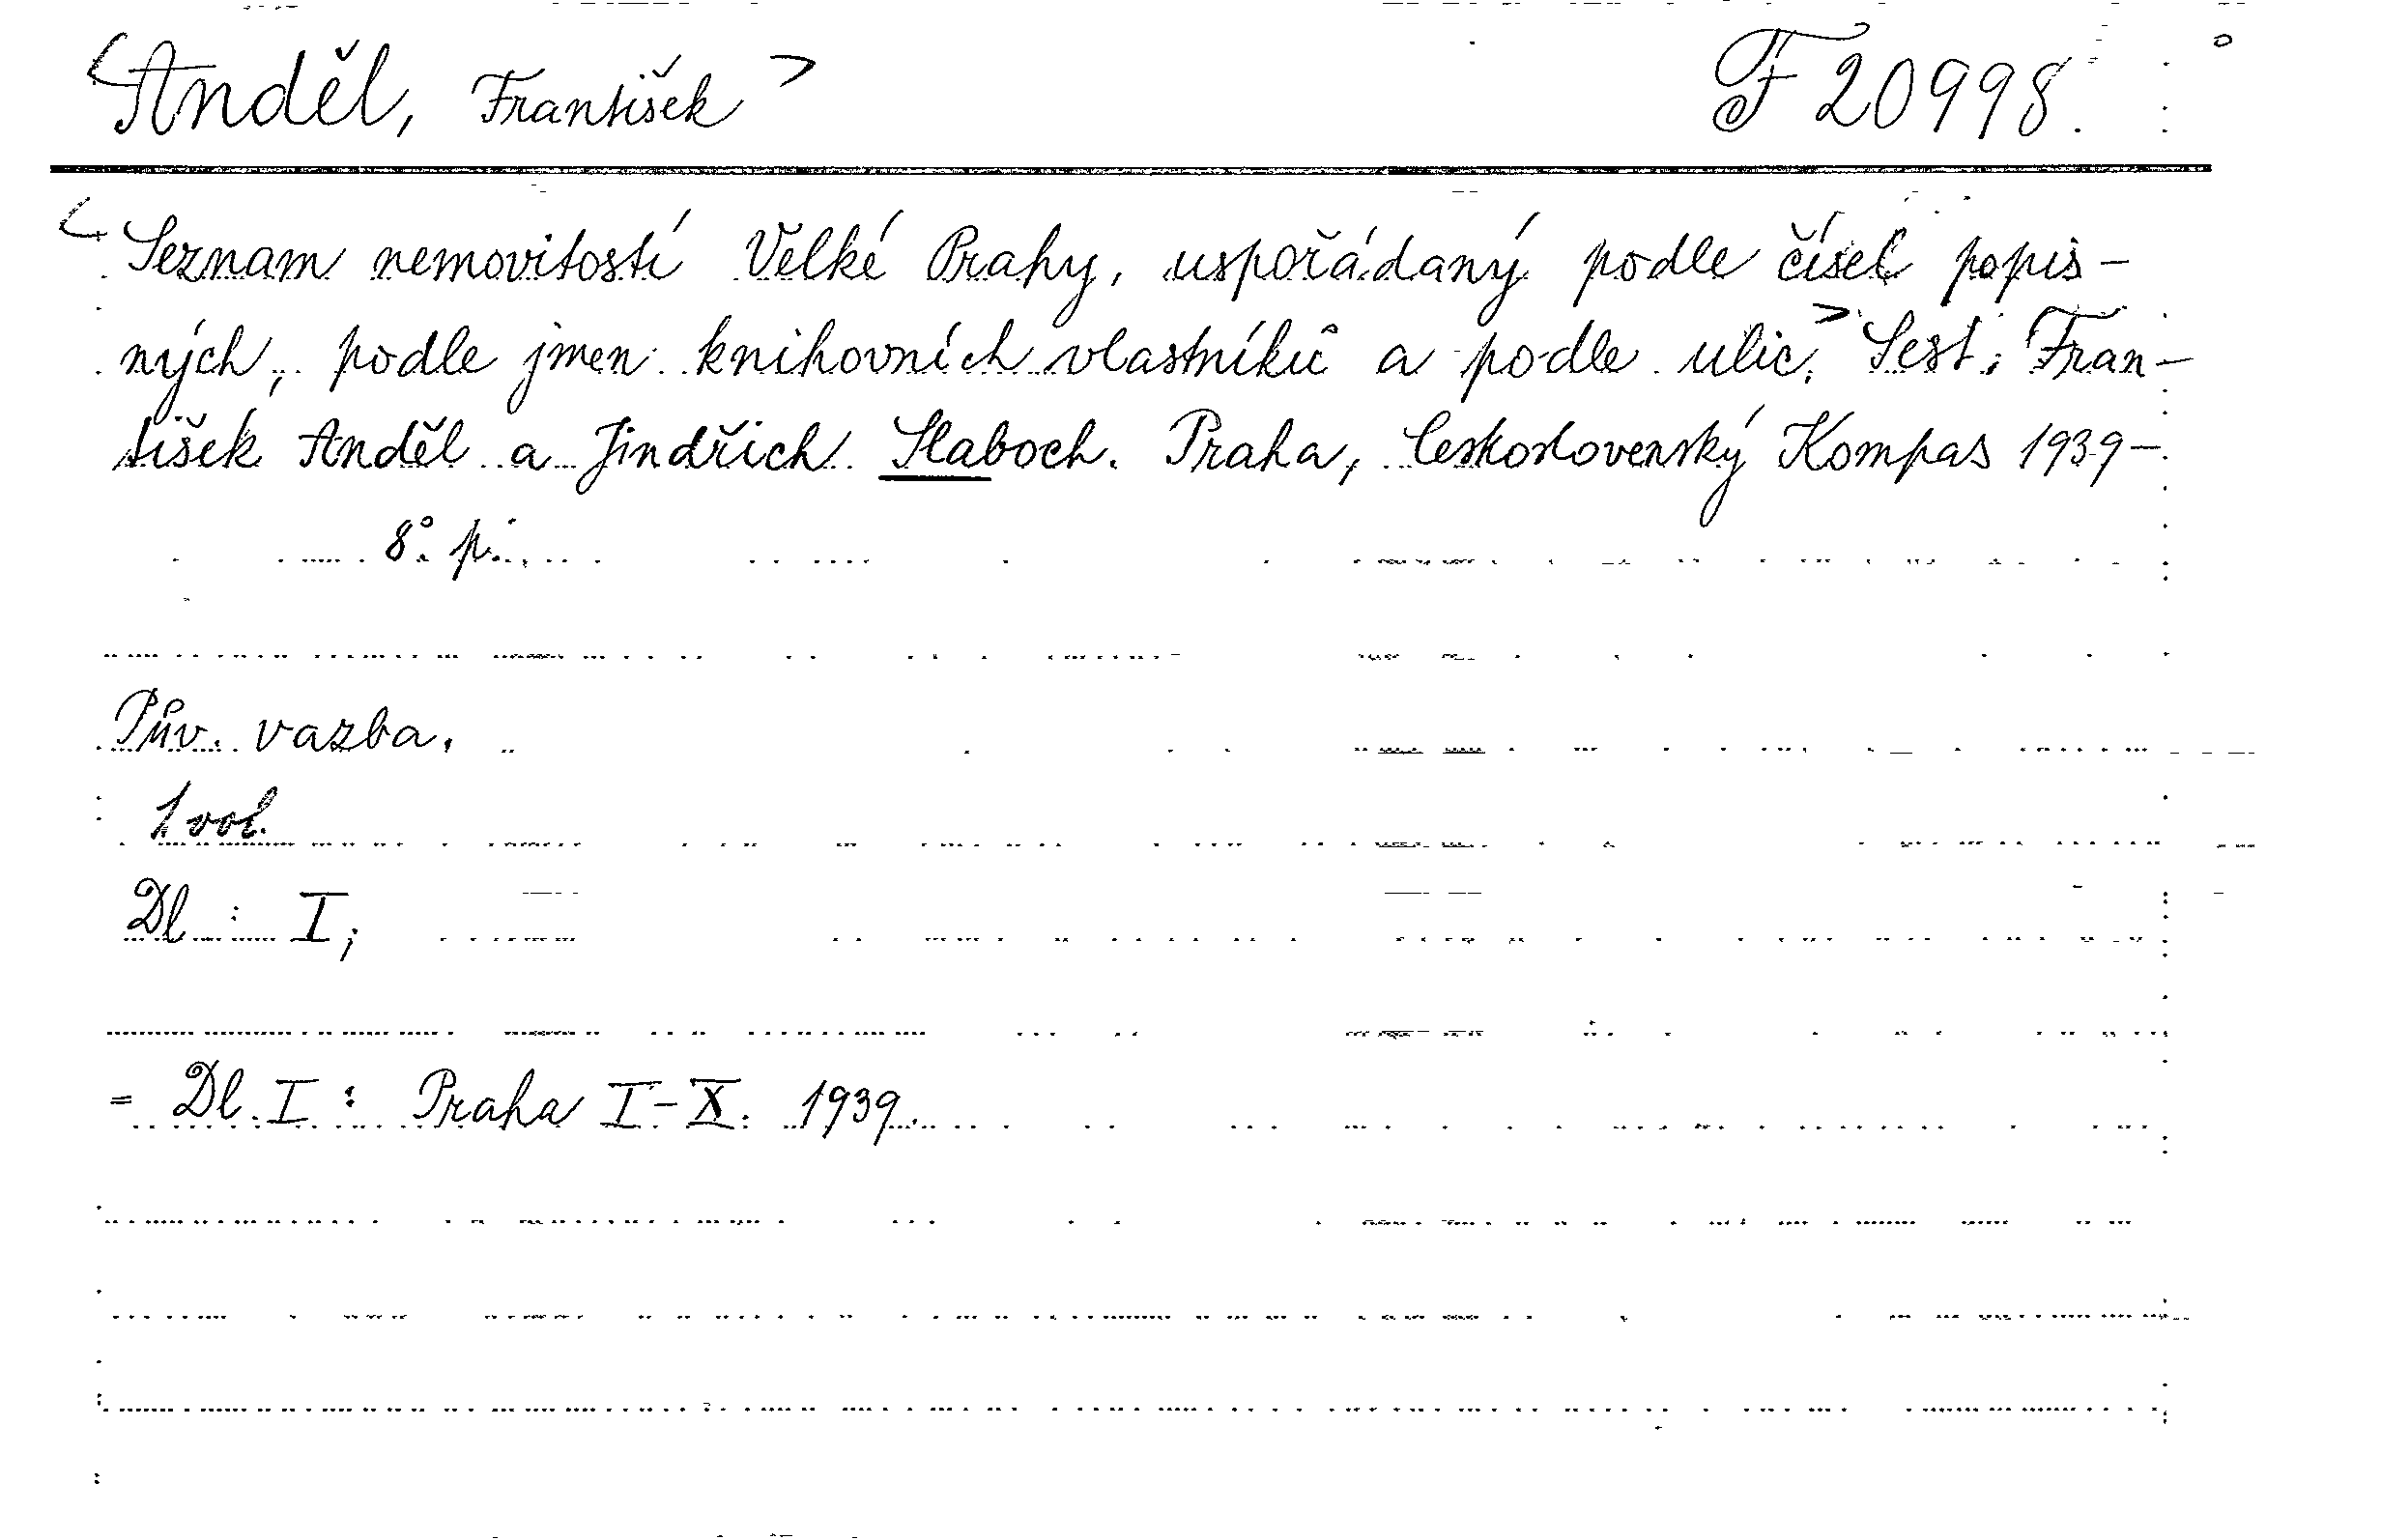 <Anděl, František> F 20998.
<Seznam nemovitostí Velké Prahy, uspořádaný podle čísel popis-
ných, podle jmen knihovních vlastníků a podle ulic.> Sest. Fran-
tišek Anděl a Jindřich Slaboch. Praha, Československý Kompas 1939-
8°. p.
Pův. vazba.
1 vol.
Dl : I;
= Dl. I : Praha I-X. 1939.